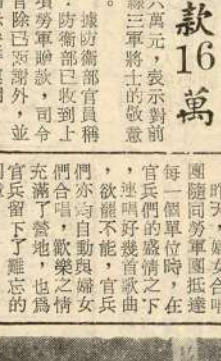 款16萬
六萬元，表示對前
線三軍將士的敬意
。
據防衛部官員稱
：防衛部已收到上
項勞軍贈款，司令
官除已函謝外，並
昨天，婦女合唱
團隨同勞軍團抵達
每一個單位時，在
官兵們的盛情之下
，連唱好幾首歌曲
，欲罷不能，官兵
們亦均自動與婦女
們合唱，歡樂之情
充滿了營地，也為
官兵留下了難忘的